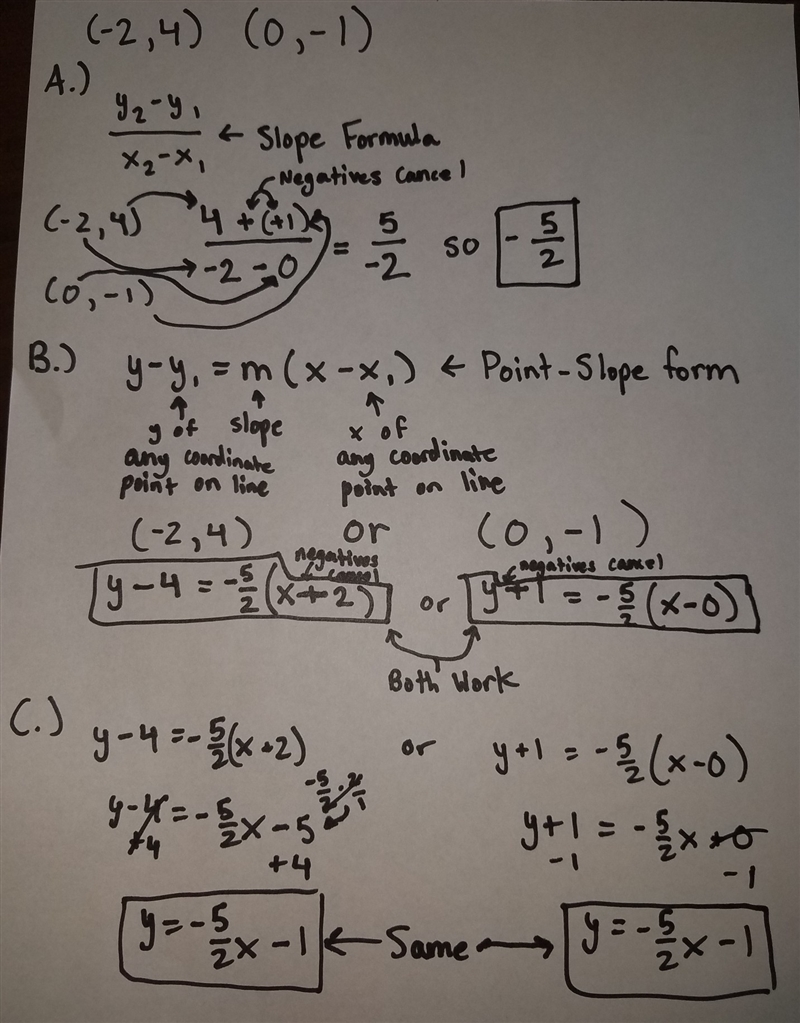 (-2,4) (0,-1)
A.)
y₂-y₁
x₂-x₁
← Slope Formula
Negatives Cancel
(-2,4)
4 + (+1)
-2 - 0
= 5/-2 so -5/2
(0,-1)
B.) y-y₁ = m(x-x₁) ← Point-Slope form
y of slope x of
any coordinate any coordinate
point on line point on line
(-2,4) or (0,-1)
negatives cancel negatives cancel
y-4 = -5/2(x+2) or y+1 = -5/2(x-0)
Both Work
C.) y-4 = -5/2(x+2) or y+1 = -5/2(x-0)
-5/2 · 2/1
y-4 = -5/2x - 5 y+1 = -5/2x + 0
+4 +4 -1 -1
y = -5/2x - 1 ← Same → y = -5/2x - 1